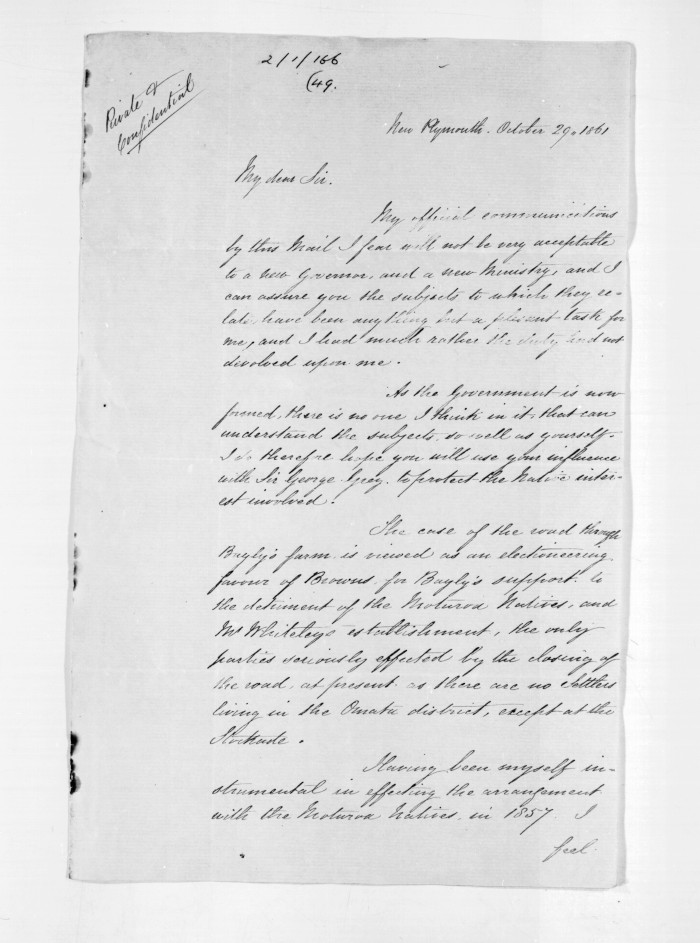 2/1/166
(49.
Private &
Confidential
New Plymouth. October 29. 1861
My dear Sir.
My official communications
by this Mail I fear will not be very acceptable
to a new Govenor, and a new Ministry, and I
can assure you the subjects to which they re-
late, have been any thing but a pleasant task for
me, and I had much rather the duty had not
devolved upon me.
As the Government is now
formed, there is no one I think in it, that can
understand the subjects, so well as yourself.
I do therefore hope you will use your influence
with Sir George Grey. to protect the Native inter-
est involved.
The case of the road through
Bayly's farm is viewed as an electioneering
favour of Browns for Bayly's support to
the detriment of the Moturoa Natives, and
Mr Whiteleys establishment, the only
parties seriously effected by the closing of
the road, at present as there are no Settlers
living in the Omata district, except at the
Stockade.
Having been myself in-
strumental in effecting the arrangement
with the Moturoa Natives in 1857 I
feel